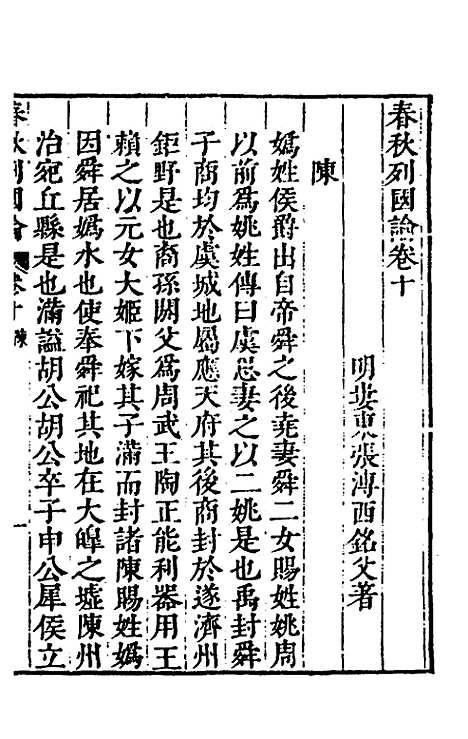 春秋列國論卷十
明婁東張溥西銘父著
陳
媯姓侯爵出自帝舜之後堯妻舜二女賜姓姚周
以前爲姚姓傳曰虞思妻之以二姚是也禹封舜
子商均於虞城地屬應天府其後商封於遂濟州
鉅野是也商孫閼父爲周武王陶正能利器用王
賴之以元女大姬下嫁其子滿而封諸陳賜姓媯
因舜居媯水也使奉舜祀其地在大皡之墟陳州
治宛丘縣是也滿謚胡公胡公卒子申公犀侯立
春秋列國論 卷十 陳 一